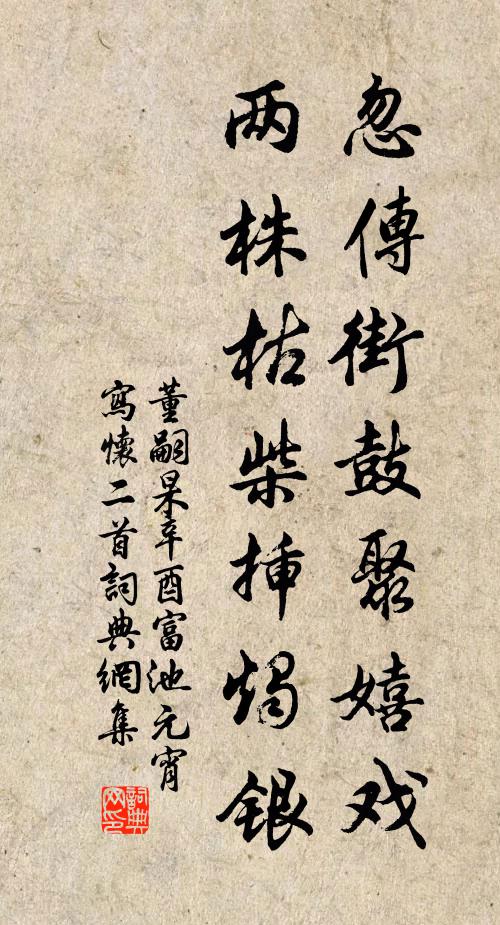 忽傳街鼓聚嬉戏
两株枯柴揷燭銀
董嗣杲辛酉富池元宵
寫懷二首詞典網集
詞典
网印